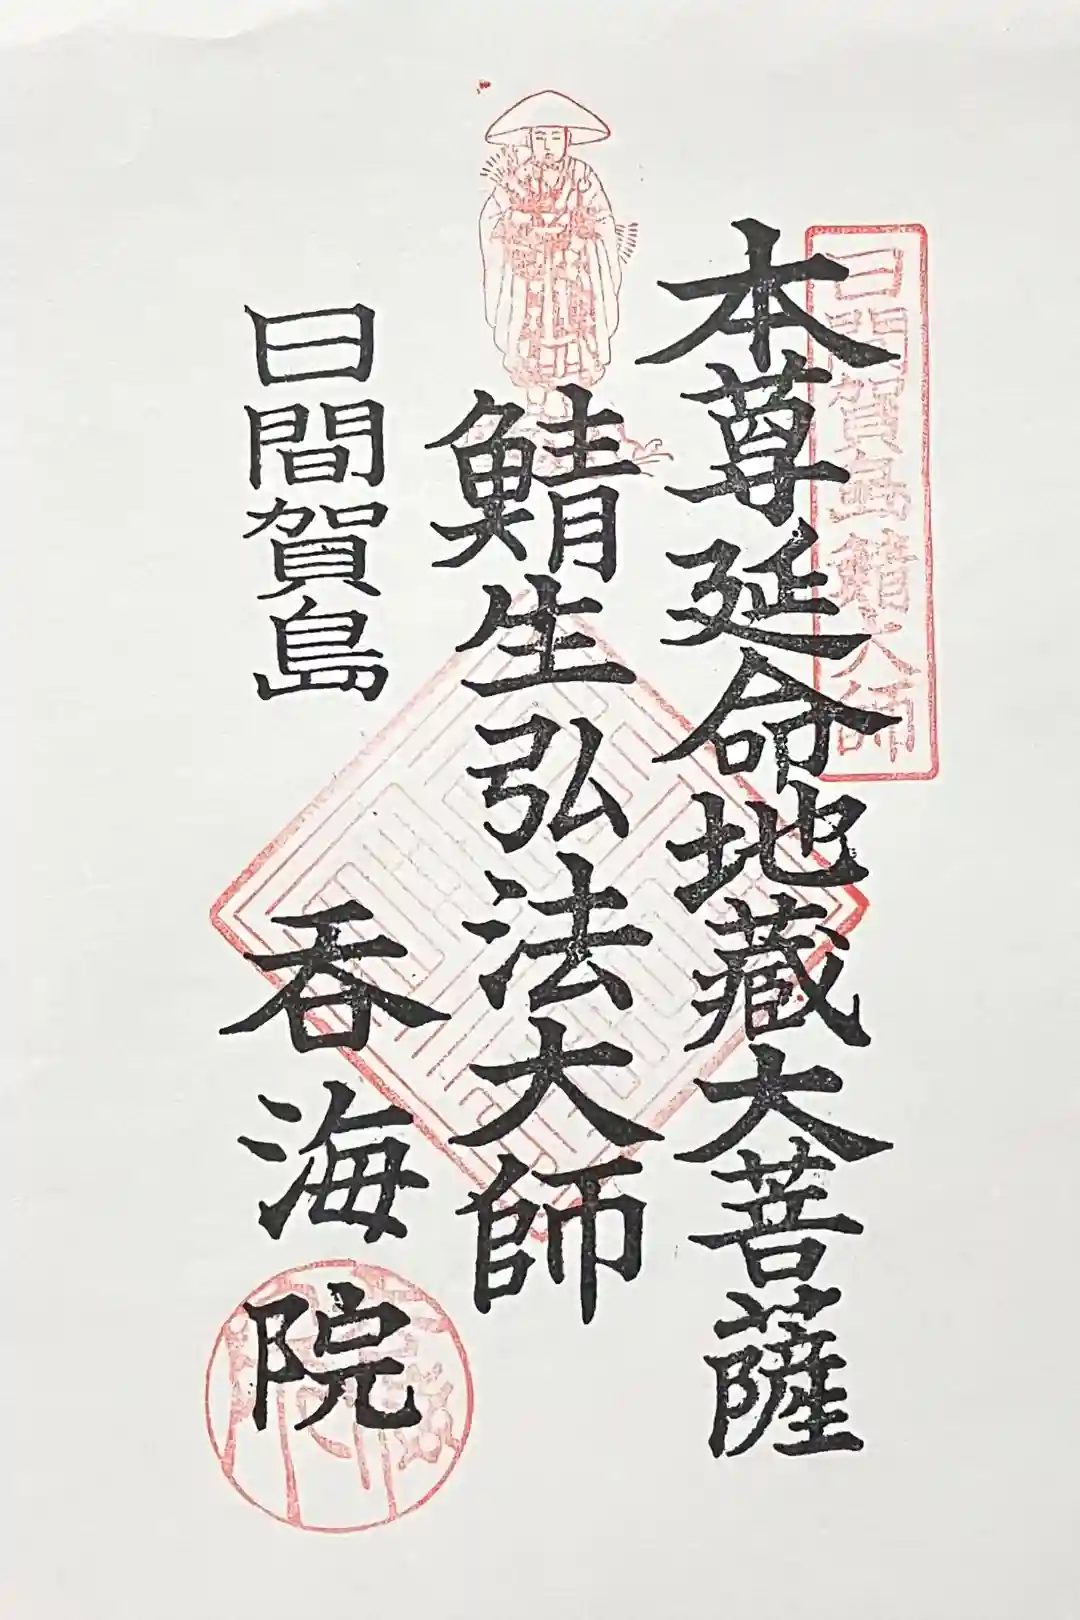 本尊延命地藏大菩薩
鯖生弘法大師
日間賀島
呑海院
日間賀島鯖大師